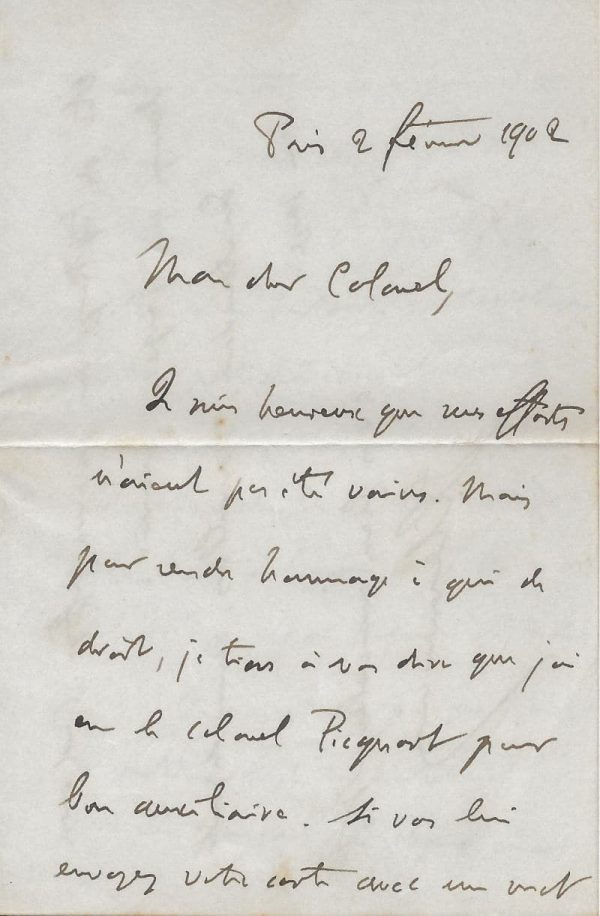 Paris 2 février 1902
Mon cher Colonel,
Je suis heureux que mes efforts
n'aient pas été vains. Mais
pour rendre hommage à qui de
droit, je tiens à vous dire que j'ai
eu le colonel Picquart pour
bon auxiliaire. Si vous lui
envoyez votre carte avec un mot